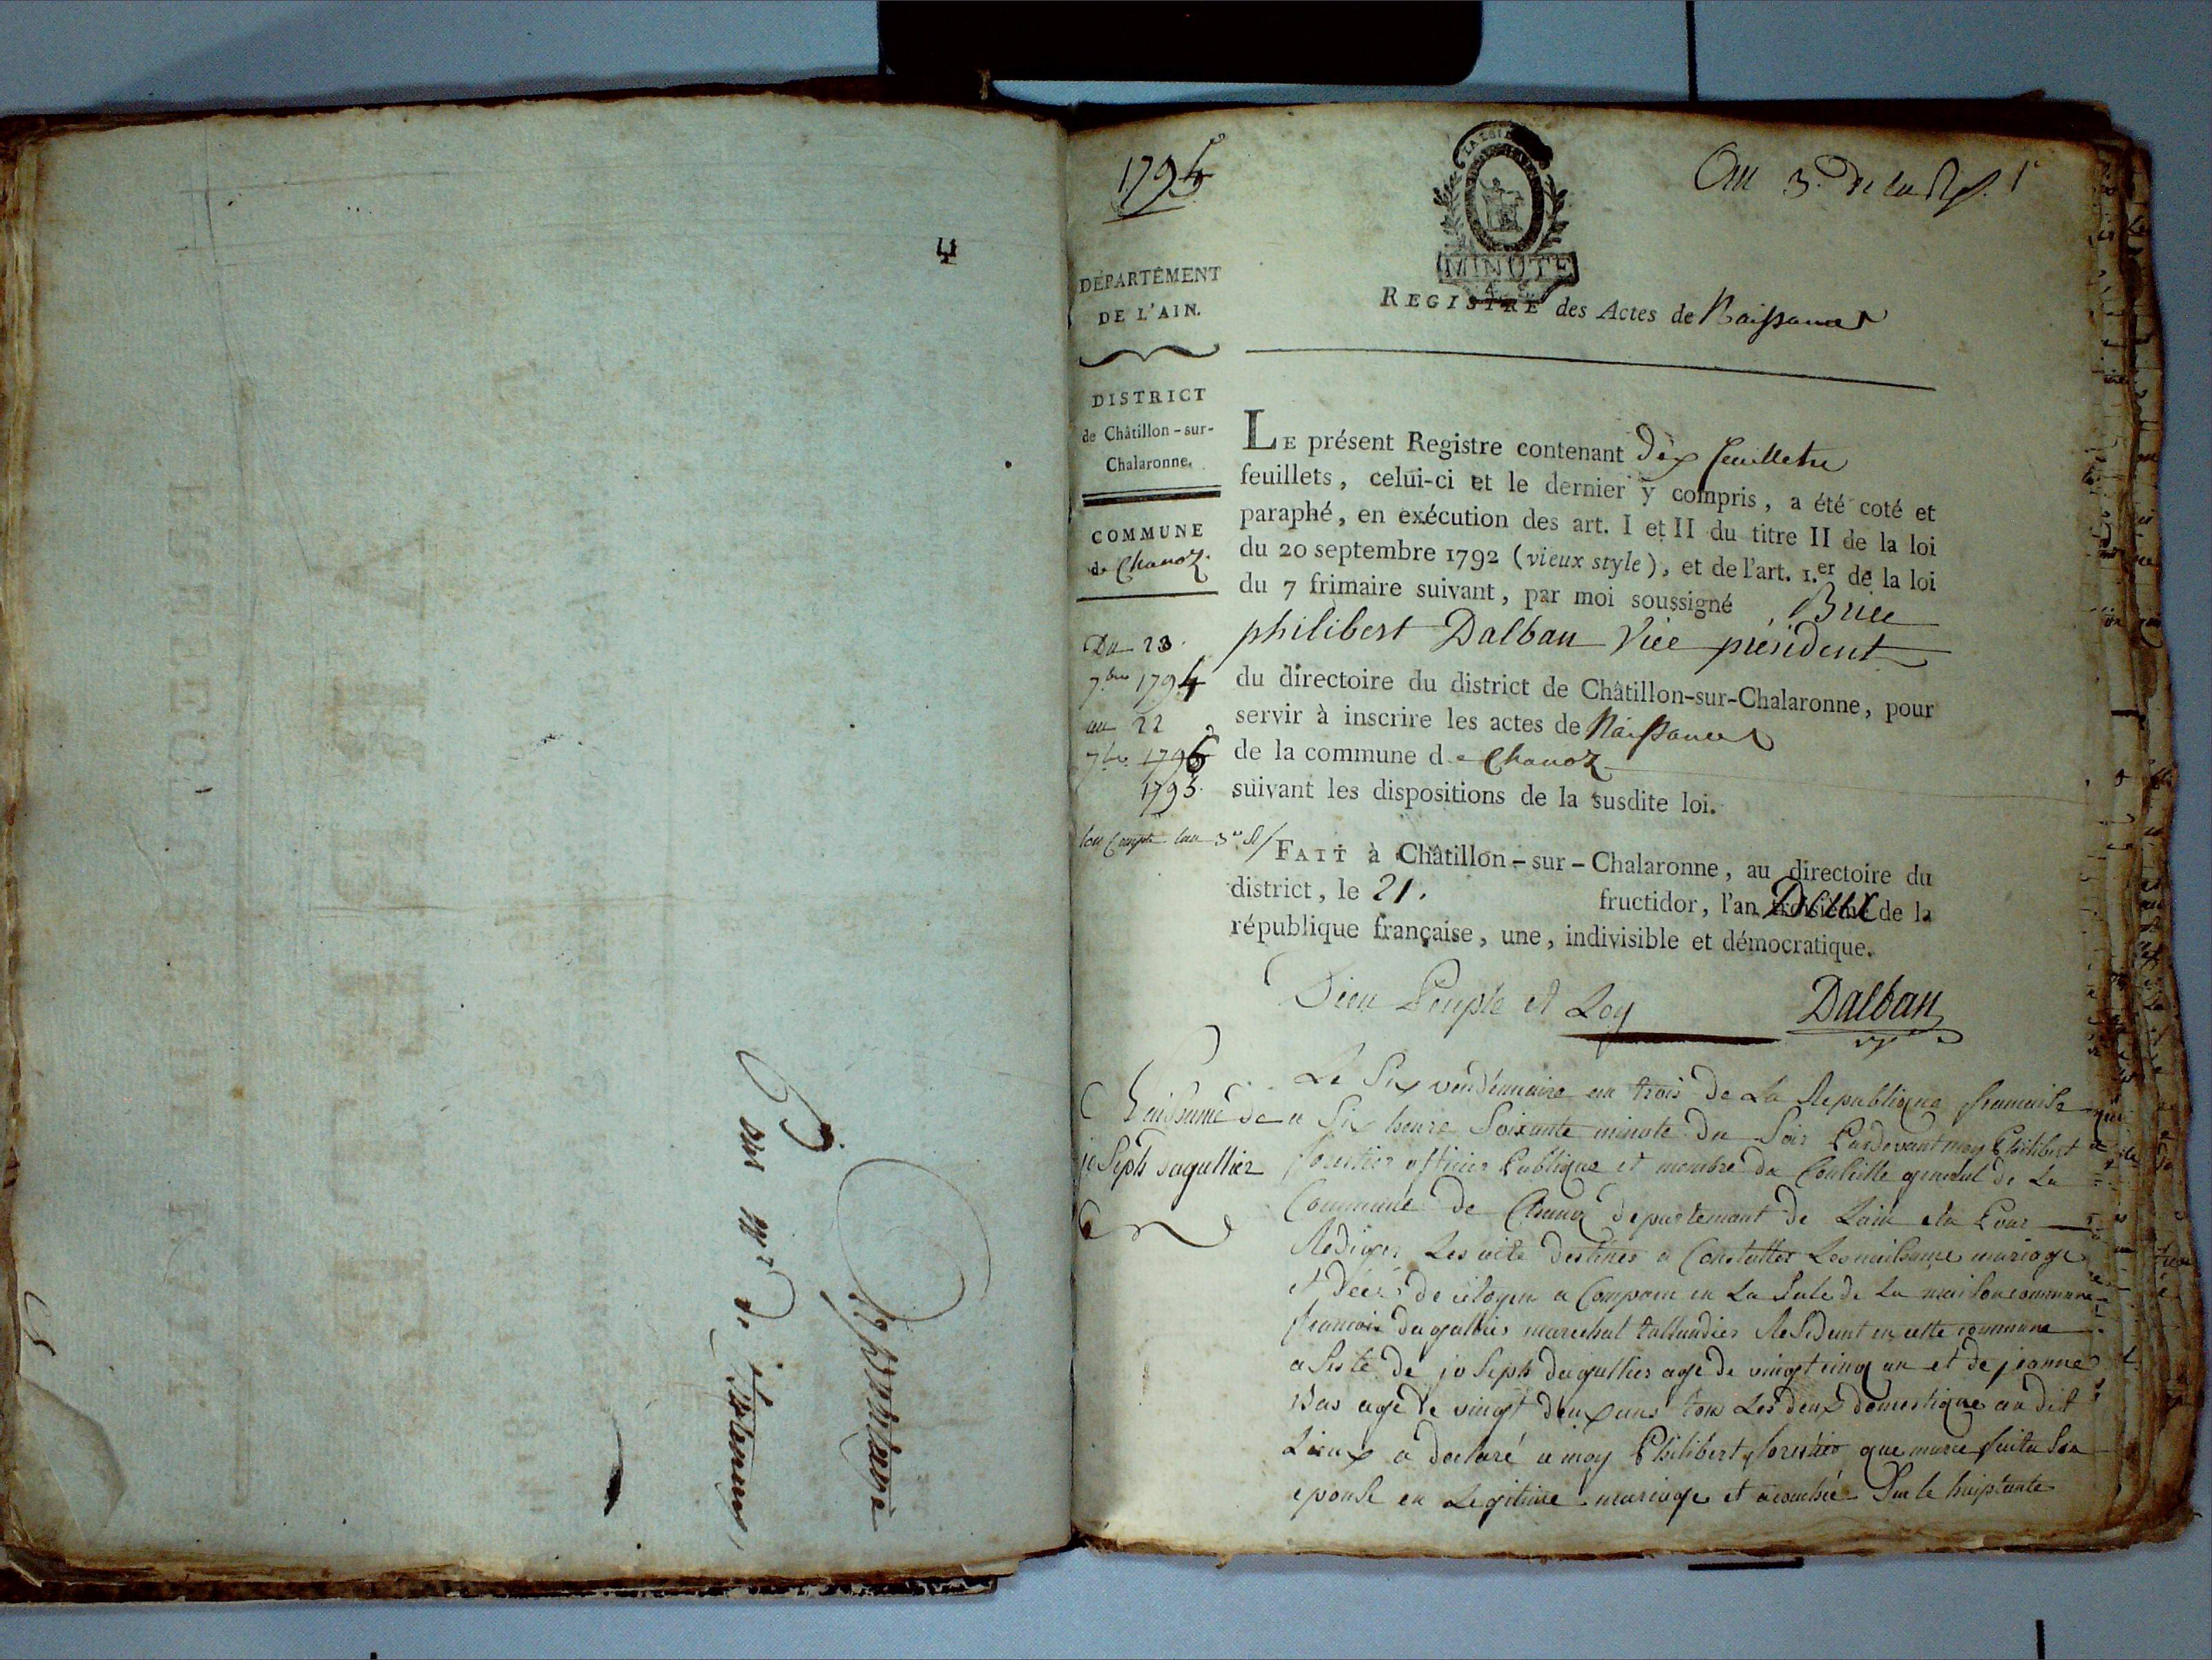 1795
An 3.e de la Rep.
LA LOI
MINUTE
DÉPARTEMENT
DE L'AIN.
REGISTRE des Actes de Naissances
DISTRICT
de Châtillon-sur-
Chalaronne.
COMMUNE
de Chanoz.
Du 23.
7.bre 1794
au 22
7.bre 1795
1795.
LE présent Registre contenant Dix feuillets
feuillets, celui-ci et le dernier y compris, a été coté et
paraphé, en exécution des art. I et II du titre II de la loi
du 20 septembre 1792 (vieux style), et de l'art. 1.er de la loi
du 7 frimaire suivant, par moi soussigné Brice
philibert Dalban Vice président
du directoire du district de Châtillon-sur-Chalaronne, pour
servir à inscrire les actes de Naissances
de la commune de Chanoz
suivant les dispositions de la susdite loi.
FAIT à Châtillon-sur-Chalaronne, au directoire du
district, le 21. fructidor, l'an troisième Deux de la
république française, une, indivisible et démocratique.
Dieu Peuple et Loy Dalban
Naissance de
joseph dagullier
Le Six vendémiaire an trois de La Republique francaise
a Six heure Soixante minute du Soir Pardevant moy Philibert
forestier officier Publique et membre du Conseille general de La
Commune de Chanoz departemant de Lain elu Pour
Rediger Les acte destines a Constatter Les naissance mariage
et décès de citoyen a Comparu en La Sale de La maison commune
francois dagullier marechal tallandier Residant en cette commune
asisté de joseph dagullier age de vingt cinq an et de jeanne
Bas age de vingt deux ans tous Les deux domestique au dit
Lieux a declaré a moy Philibert forestier que marie
epouse en Legitime mariage et acouchée